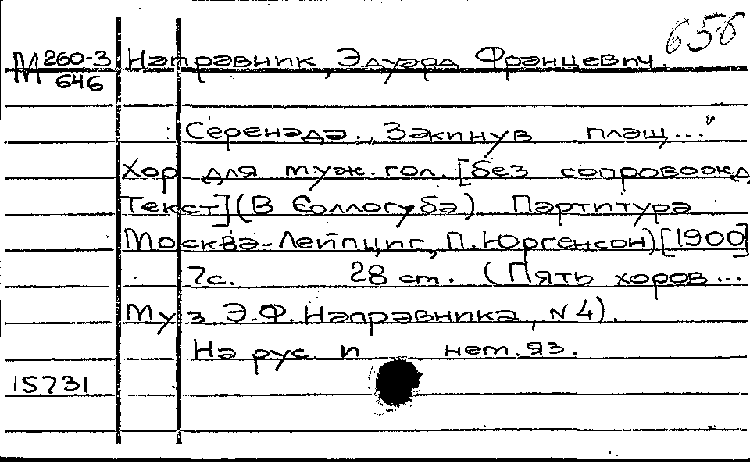 656
М 260-3 Направник, Эдуард Францевич.
646
Серенада „Закинув плащ..."
Хор для муж. гол. [без сопровожд
Текст] (В Соллогуба) Партитура
Москва-Лейпциг, П. Юргенсон) [1900]
7с. 28 см. (Пять хоров...
Муз Э.Ф. Направника, N 4).
На рус. и нем. яз.
15731